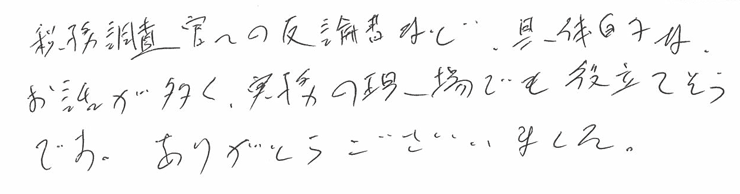 税務調査官への反論書など、具体的な、
お話が多く、実務の現場でも役立てそう
です。ありがとうございました。